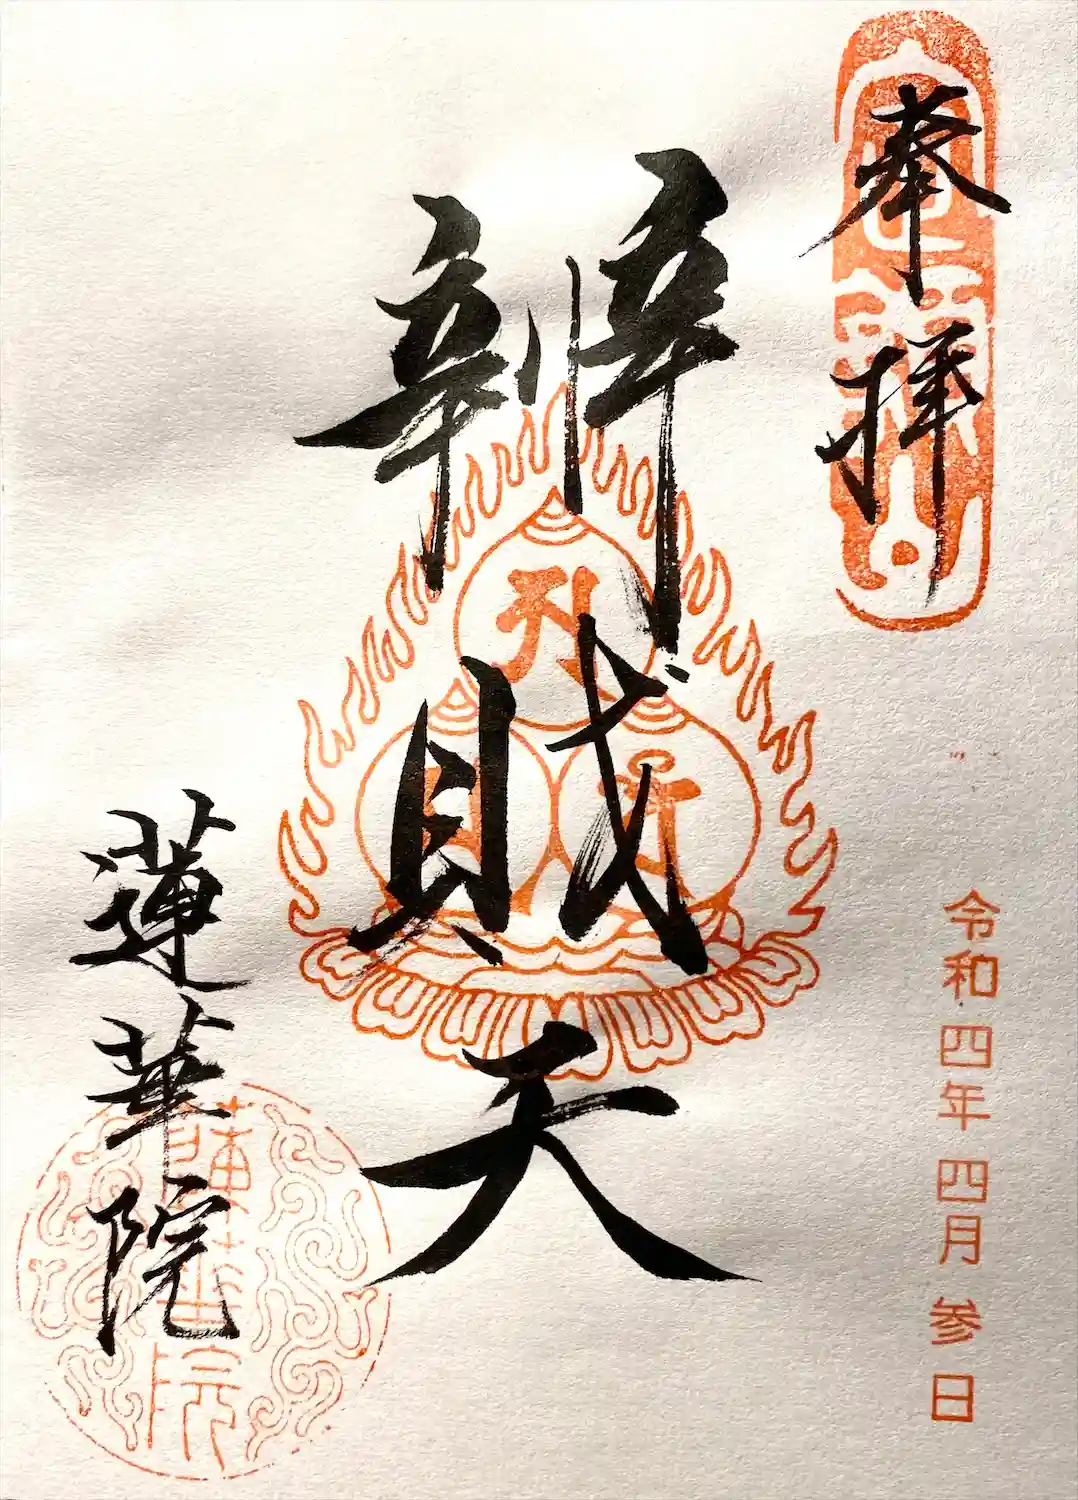 奉拝
令和四年四月参日
辨財天
蓮華院
蓮華院